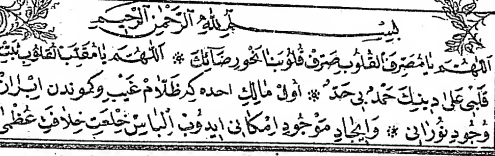 بسم الله الرحمن الرحيم
اللهم يا مصرف القلوب صرف قلوبنا نحو رضائك * اللهم يا مقلب القلوب ثبت
قلبى على دينك حمد بى حد * اول مالك احده كه ظلام غيب وكموندن ابراز
وجود نورانى * وايجاد موجود امكانى ايدوب الباس خلعت خلافت عظمى